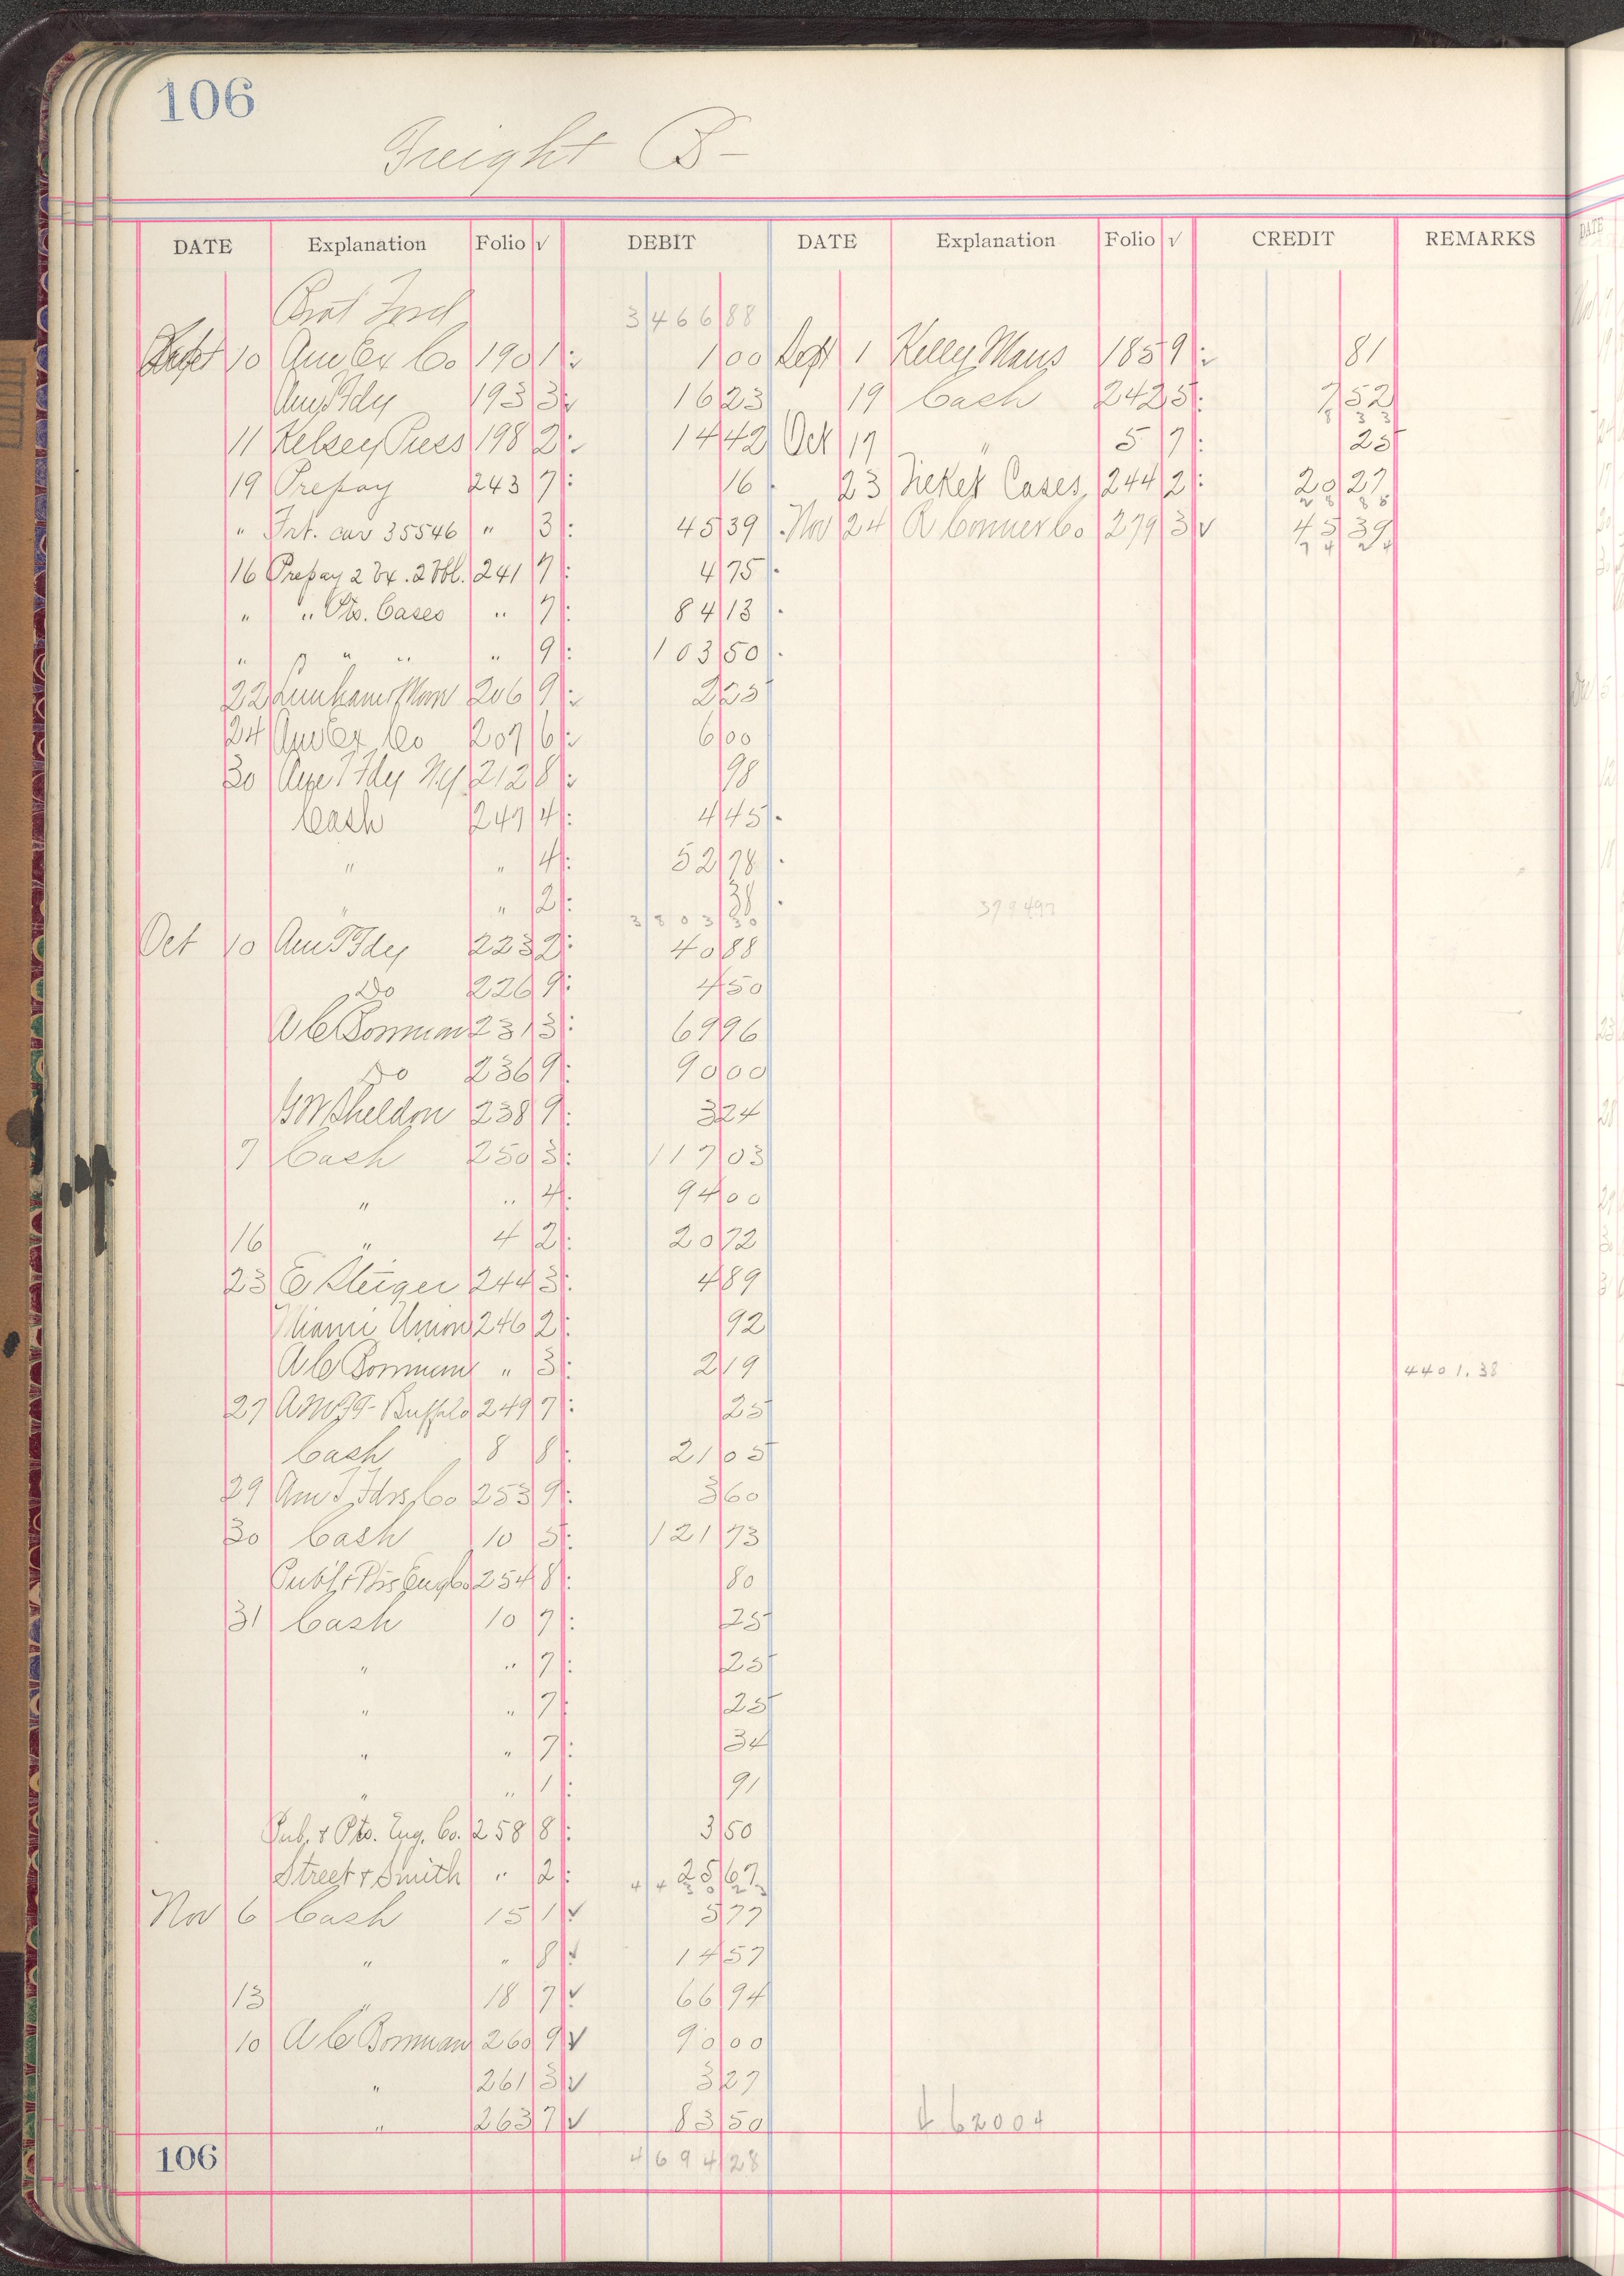 106
Freight B-
DATE Explanation Folio √ DEBIT DATE Explanation Folio √ CREDIT REMARKS
3466 88
Sept 10 Am Ex Co 190 1 1 00 Sept 1 Kelly Maus 185 9 81
193 3 16 23 19 Cash 242 5 7 52
8 33
11 Kelsey Press 198 2 14 42 Oct 17 " 5 7 25
19 Prepay 243 7 16 23 Ticket Cases 244 2 20 27
28 88
" Frt. car 35546 " 3 45 39 Nov 24 279 3 √ 45 39
74 24
16 Prepay 2 bx. 2 bbl. 241 7 4 75
" " Pts. Cases " 7 84 13
" " " " 9 103 50
22 206 9 2 25
24 Am Ex Co 207 6 6 00
30 Am T Fdy N.Y. 212 8 98
Cash 247 4 4 45
" " 4 52 78
" " 2 38
3803 30 379497
Oct 10 Am T Fdy 223 2 40 88
Do 226 9 4 50
A C Bornman 231 3 69 96
Do 236 9 90 00
G W Sheldon 238 9 3 24
7 Cash 250 3 117 03
" " 4 94 00
16 " 4 2 20 72
23 E Steiger 244 3 4 89
Miami Union 246 2 92
A C Bornman " 3 2 19 4401.38
27 Buffalo 249 7 25
Cash 8 8 21 05
29 Am T Fdrs Co 253 9 3 60
30 Cash 10 5 121 73
Publ & Ptrs Eng Co 254 8 80
31 Cash 10 7 25
" " 7 25
" " 7 25
" " 7 34
" " 1 91
Pub. & Pts. Eng. Co. 258 8 3 50
Street & Smith " 2 25 67
Nov 6 Cash 15 1 √ 5 77
" " 8 √ 14 57
13 " 18 7 √ 66 94
10 A C Bornman 260 9 √ 90 00
" 261 3 √ 3 27
" 263 7 √ 83 50 62004
106 4694 28